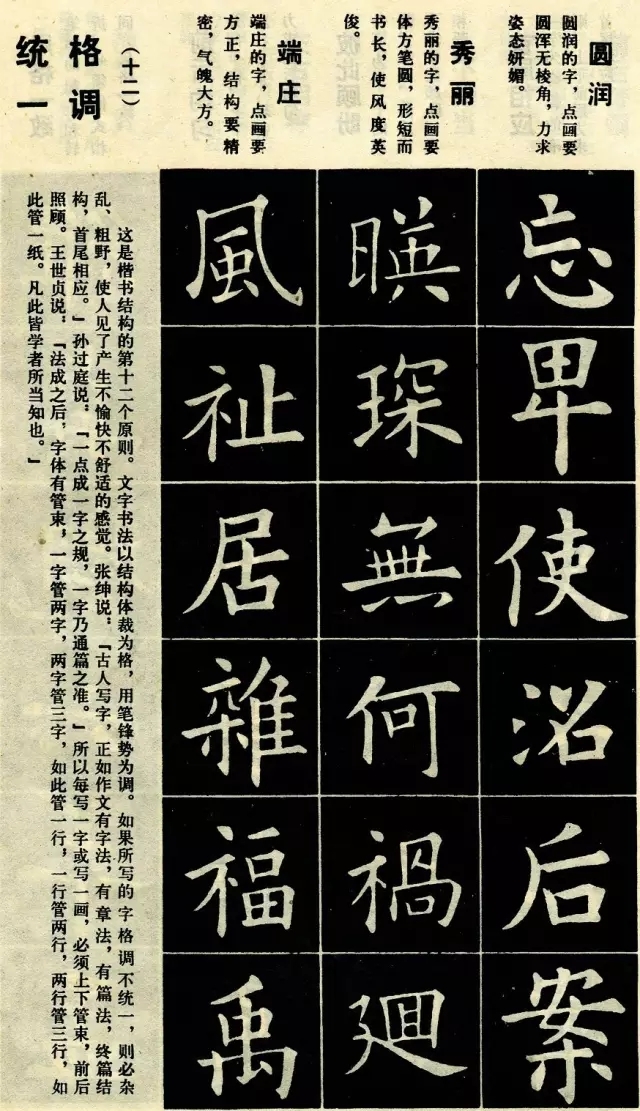 圆润
圆润的字，点画要
圆浑无棱角，力求
姿态妍媚。
忘
卑
使
沼
后
案
秀丽
秀丽的字，点画要
体方笔圆，形短而
书长，使风度英
俊。
暎
琛
無
何
禍
廻
端庄
端庄的字，点画要
方正，结构要精
密，气魄大方。
風
祉
居
雜
福
禹
（十二）
格调
统一
这是楷书结构的第十二个原则。文字书法以结构体裁为格，用笔锋势为调。如果所写的字格调不统一，则必杂
乱、粗野，使人见了产生不愉快不舒适的感觉。张绅说：“古人写字，正如作文有字法，有章法，有篇法，终篇结
构，首尾相应。”孙过庭说：“一点成一字之规，一字乃通篇之准。”所以每写一字或写一画，必须上下管束，前后
照顾。王世贞说：“法成之后，字体有管束，一字管两字，两字管三字，如此管一行，一行管两行，两行管三行，如
此管一纸。凡此皆学者所当知也。”